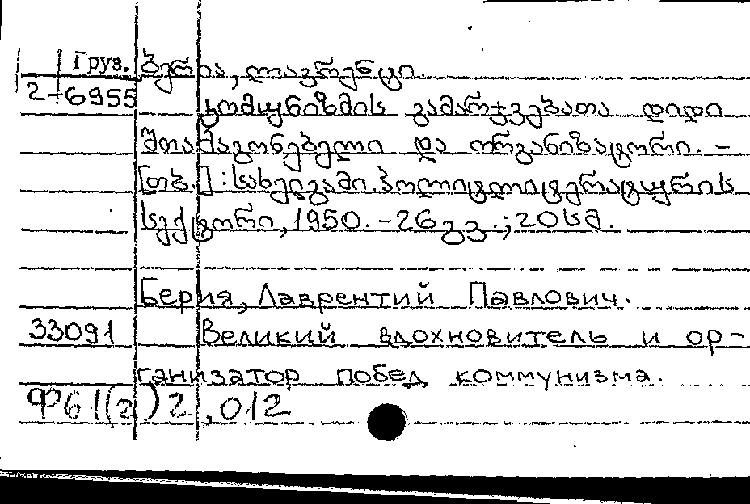 Груз. ბერია, ლავრენტი.
2-6955 კომუნიზმის გამარჯვებათა დიდი
შთამაგონებელი და ორგანიზატორი. –
[თბ.]: სახელგამი. პოლიტლიტერატურის
სექტორი, 1950. – 26 გვ.; 20 სმ.
Берия, Лаврентий Павлович.
33091 Великий вдохновитель и ор-
ганизатор побед коммунизма.
Ф61(2)2,012